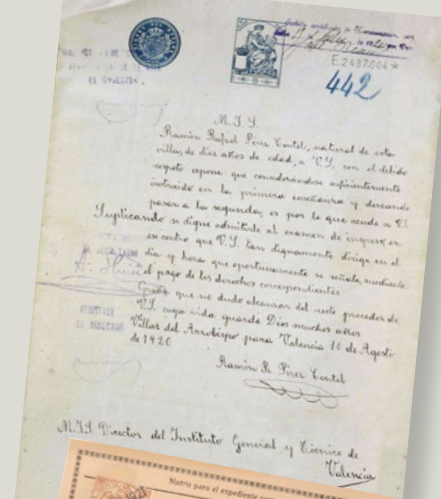 E.2487.004 *
442
M. I. S.
Ramón Rafael Pérez Contel, natural de esta
villa, de diez años de edad, a V.S. con el debido
respeto expone que considerándose suficientemente
instruido en la primera enseñanza y deseando
pasar a la segunda, es por lo que acude a V.S.
Suplicando se digne admitirle al examen de ingreso en
ese centro que V.S. tan dignamente dirige en el
día y hora que oportunamente se señale, mediante
el pago de los derechos correspondientes
Gracia que no duda alcanzar del recto proceder de
V.S. cuya vida guarde Dios muchos años
Villar del Arzobispo para Valencia 10 de Agosto
de 1920
Ramón R. Pérez Contel
EL DIRECTOR
M.I.S. Director del Instituto General y Técnico de
Valencia
Matriz para el expediente